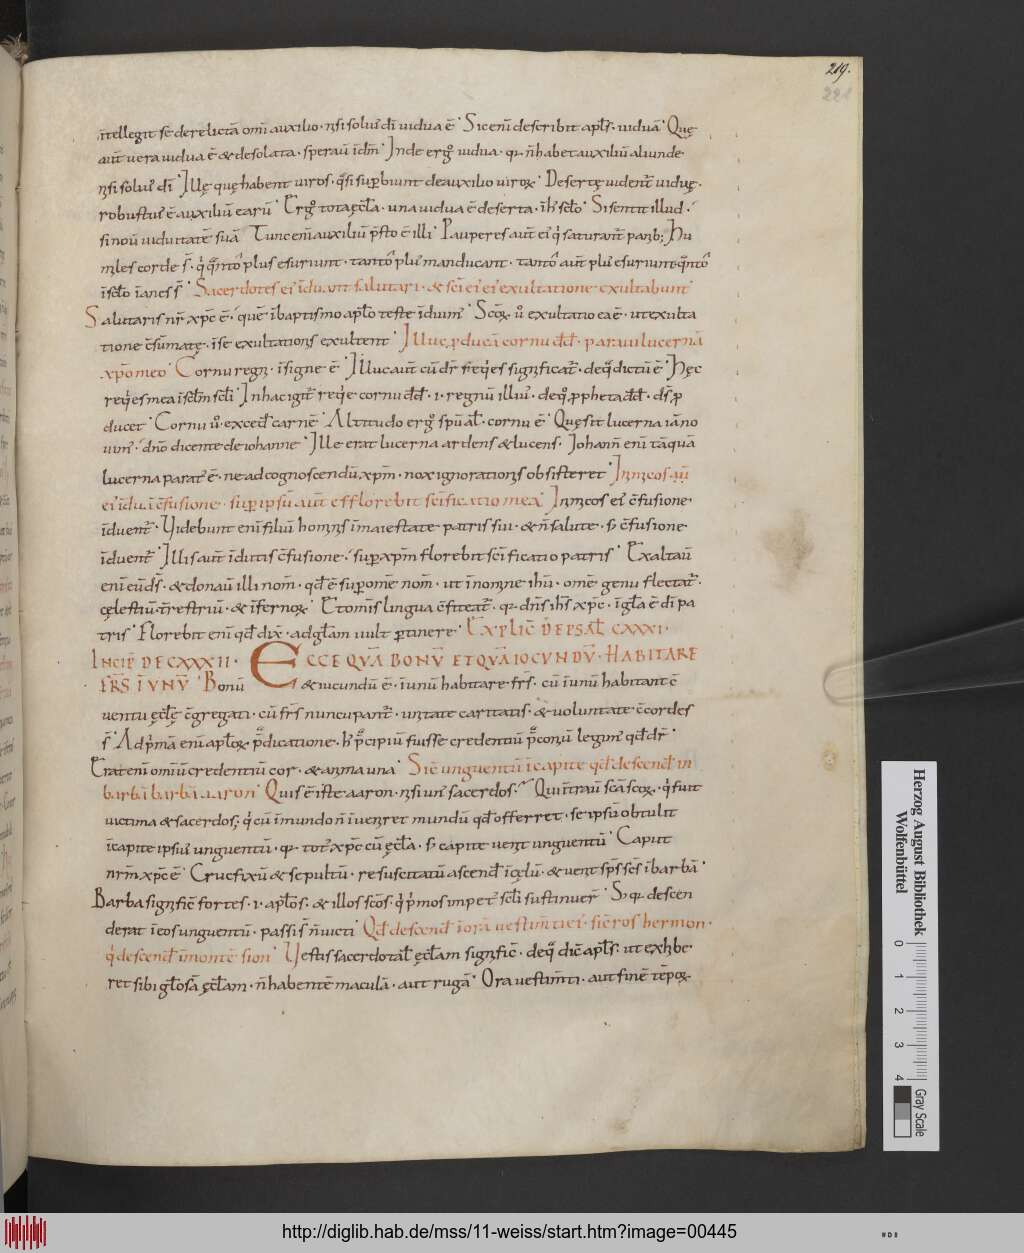 219.
221
int̄ellegit se derelictā om̄i auxilio · n̄si solius dī uidua ē · Sic enī describit apl̄s · uiduā · Quę
aut̄ uera uidua ē & desolata · sperauit ī dn̄m · Inde ergo uidua · q̄ n̄ habet auxiliū aliunde
n̄si solius dī · Illę quę habent uiros · q̄si suꝑbiunt de auxilio uiroꝝ · Desertę uident̄ uiduę ·
robustius ē auxiliū earū · Ergo tota ęccl̄a · una uidua ē deserta · in hoc sc̄lo · Si sentit illud ·
si nouit uiduitatē suā · Tunc enī auxiliū p̄sto ē illi · Pauperes aut̄ ei' q̇ saturant̄ panib; · Hu
miles corde s̄ · q̇ q̄nto plus esuriunt · tanto plus manducant · tanto aut̄ plus esuriunt · q̄nto
ī sc̄lo inanes s̄ · Sacerdotes ei' induam salutari · & sc̄i ei' exultatione exultabunt
Salutaris nr̄ xp̄c ē · quē ī baptismo aplo teste induim' · Sc̄oꝝ u̇ exultatio ea ē · ut exulta
tione c̄sūmatę · in se exultationis exultent · Illuc ꝓducā cornu dd̄ · paraui lucernā
xp̄o meo · Cornu regni · insigne ē · Illuc aut̄ cū dr̄ · req̇es significat̄ · de q̇ dictū ē · Hęc
req̇es mea ī sc̄lm sc̄li · In hac igit̄ req̇e cornu dd̄ · i · regnū illius · de quo ꝓpheta dd̄ · ds̄ ꝓ
ducet · Cornu u̇ · excedit carnē · Altitudo ergo spūal̄ · cornu ē · Quę sit lucerna iā no
uim' · dn̄o dicente de iohanne · Ille erat lucerna ardens & lucens · Johann̄ enī tāquā
lucerna parat' ē · ne ad cognoscendū xp̄m · nox ignorationis obsisteret · Inimicos aut̄
ei' induā c̄fusione · suꝑ ipsū aut̄ efflorebit sc̄ificatio mea · Inimicos ei' c̄fusione ·
induent̄ · Uidebunt enī filiū hominis ī maiestate patris sui · & n̄ salute · s̄ c̄fusione
induent̄ · Illis aut̄ indutis c̄fusione · suꝑ xp̄m florebit sc̄ificatio patris · Exaltauit
enī eū ds̄ · & donauit illi nom̄ · qd̄ ē suꝑ omē nom̄ · ut ī nomine ihū · omē genu flectat̄ ·
cęlestiū · t̄restriū · & īfernoꝝ · Et om̄is lingua c̄fiteat̄ · q̄ dn̄s ihs̄ xp̄c · ī gl̄a ē dī pa
tris · Florebit enī qd̄ dix̄ · ad gl̄am uult ꝑtinere · EXPLIC̄ DE PSAL̄ CXXXI ·
INCIP̄ DE CXXXII · ECCE QUĀ BONŪ ET QUĀ IOCUNDŪ · HABITARE
FR̄S ĪUNŪ · Bonū & iucundū ē · ī unū habitare fr̄s · cū ī unū habitant c̄
uentu ęccl̄ę c̄gregati · cū fr̄s nuncupant̄ · unitate caritatis · & uoluntate c̄cordes
s̄ · Ad p̄mā enī aploꝝ p̄dicatione · h̄ p̄cipiū fuisse credentiū p̄coniū legim' qd̄ dr̄ ·
Erat enī omiū credentiū cor · & anima una · Sic̄ unguentū ī capite qd̄ descendit in
barbā barbā aaron · Quis ē iste aaron · n̄si un' sacerdos · Qui int̄rauit sc̄a sc̄oꝝ · q̇ fuit
uictima & sacerdos; q̇ cū ī mundo n̄ inueniret mundū qd̄ offerret · se ipsū obtulit
ī capite ipsius unguentū · q̄ tot' xp̄c cū ęccl̄a · s̄ capite uenit unguentū · Caput
nrm̄ xp̄c ē · Crucifixū & sepultū · resuscitatū ascendit ī cęlū · & uenit sps̄ sc̄s ī barbā ·
Barba significat fortes · i · aplos · & illos sc̄os · q̇ p̄mos impet' sc̄li sustinuer̄ · Si q̄ descen
derat ī eos unguentū · passi s̄ n̄ uicti · Qd̄ descendit ī orā uestimti ei' · sic̄ ros hermon ·
q̇ descendit ī montē sion · Uestis sacerdotal̄ ęccl̄am significat · de q̇ dic̄ apl̄s · ut exhibe
ret sibi gl̄osā ęccl̄am · n̄ habentē maculā · aut rugā · Ora uestim̄ti · aut finē tēpoꝝ
Herzog August Bibliothek
Wolfenbüttel
0 1 2 3 4
Gray Scale
http://diglib.hab.de/mss/11-weiss/start.htm?image=00445